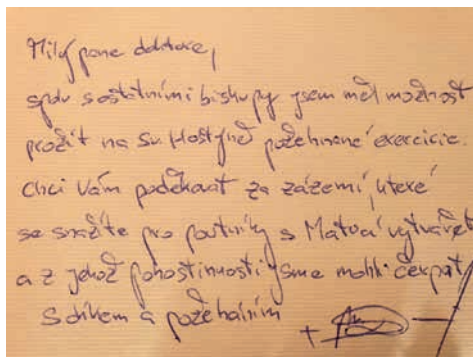 Milý pane doktore,
spolu s ostatními biskupy jsem měl možnost
prožít na Sv. Hostýně požehnané exercicie.
Chci Vám poděkovat za zázemí, které
se snažíte pro poutníky s Maticí vytvářet
a z jehož pohostinnosti jsme mohli čerpat
S díkem a požehnáním
+